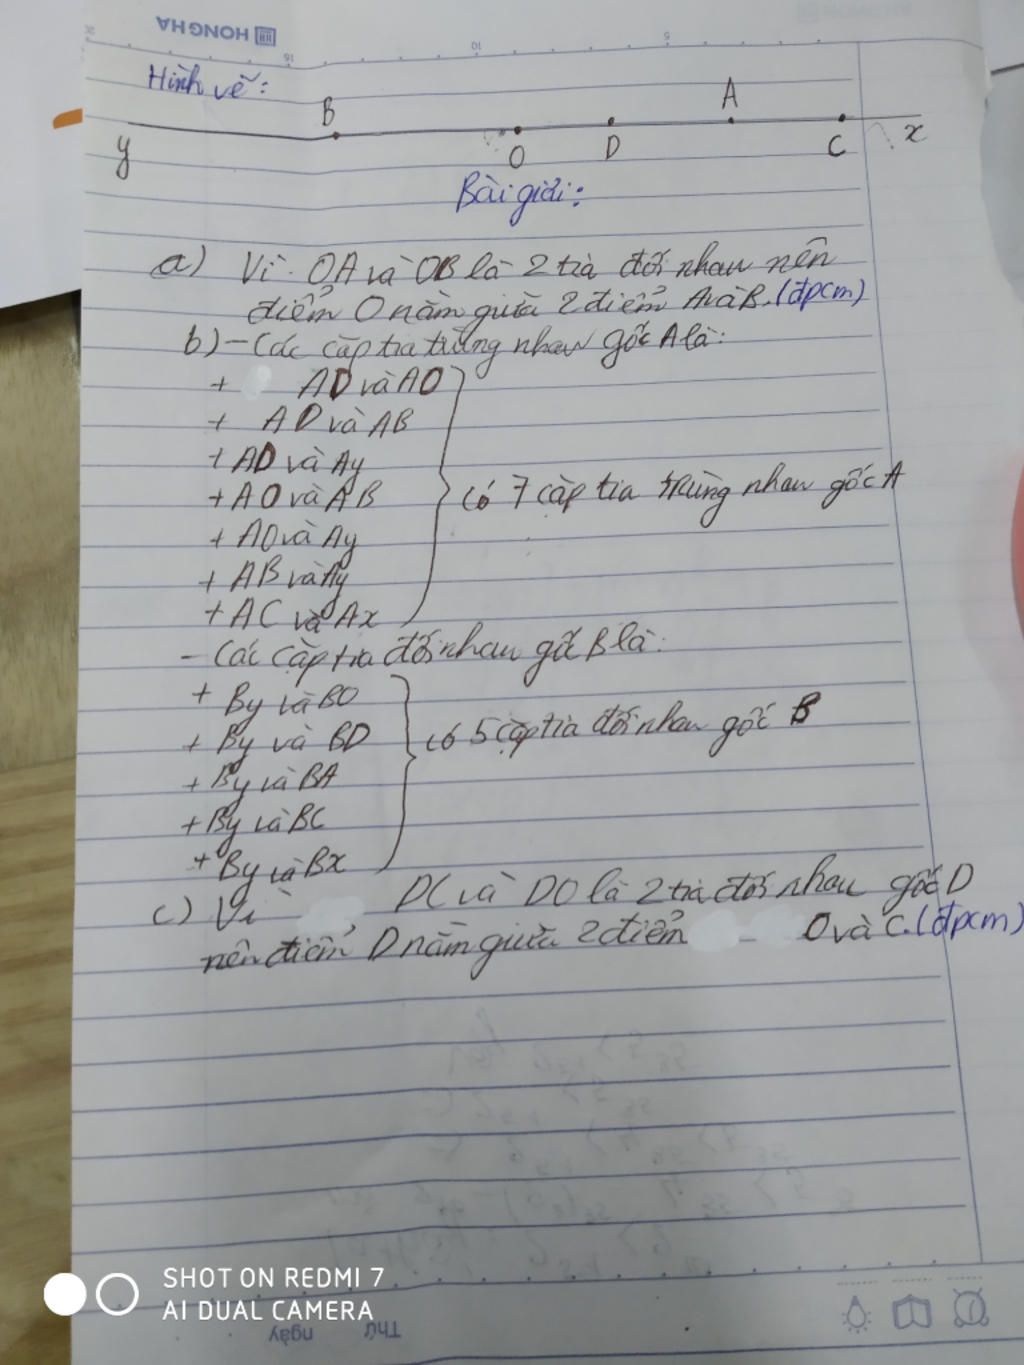 HONG HA
20 15 10 5
Hình vẽ:
B A
y O D C x
Bài giải:
a) Vì OA và OB là 2 tia đối nhau nên
điểm O nằm giữa 2 điểm A và B. (đpcm)
b) - Các cặp tia trùng nhau gốc A là:
+ AD và AO
+ AD và AB
+ AD và Ay
+ AO và AB
+ AO và Ay
+ AB và Ay
+ AC và Ax
có 7 cặp tia trùng nhau gốc A
- Các cặp tia đối nhau gốc B là:
+ By và BO
+ By và BD
+ By và BA
+ By và BC
+ By và Bx
có 5 cặp tia đối nhau gốc B
c) Vì DC và DO là 2 tia đối nhau gốc D
nên điểm D nằm giữa 2 điểm O và C. (đpcm)
SHOT ON REDMI 7
AI DUAL CAMERA
Thứ ngày